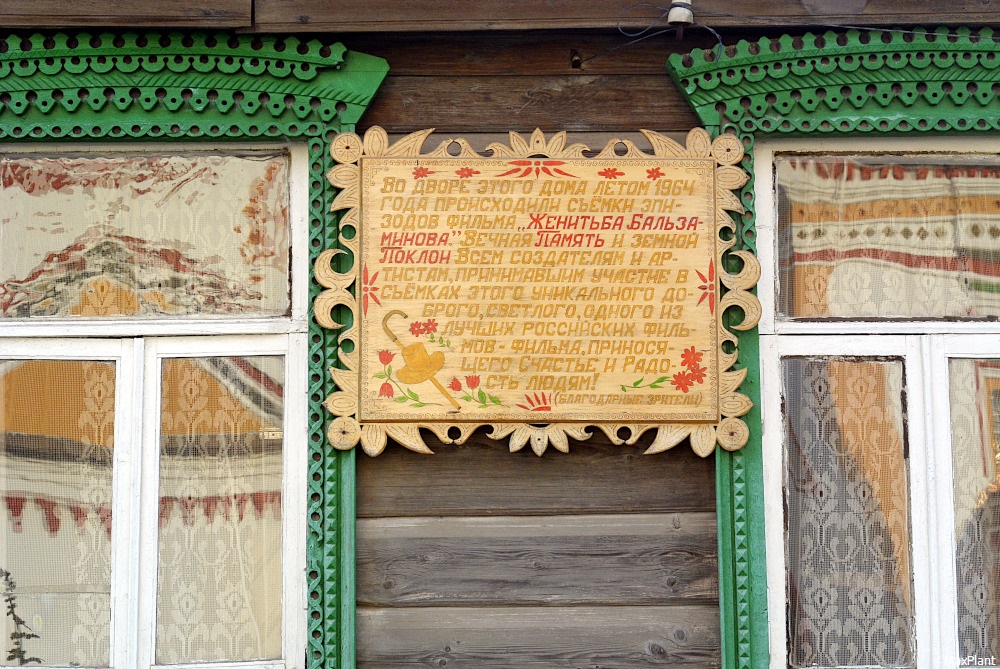 Во дворе этого дома летом 1964
года происходили съёмки эпи-
зодов фильма „Женитьба Бальза-
минова." Вечная Память и земной
Поклон Всем создателям и ар-
тистам, принимавшим участие в
съёмках этого уникального до-
брого, светлого, одного из
лучших российских филь-
мов - фильма, принося-
щего Счастье и Радо-
сть людям!
(Благодарные зрители)